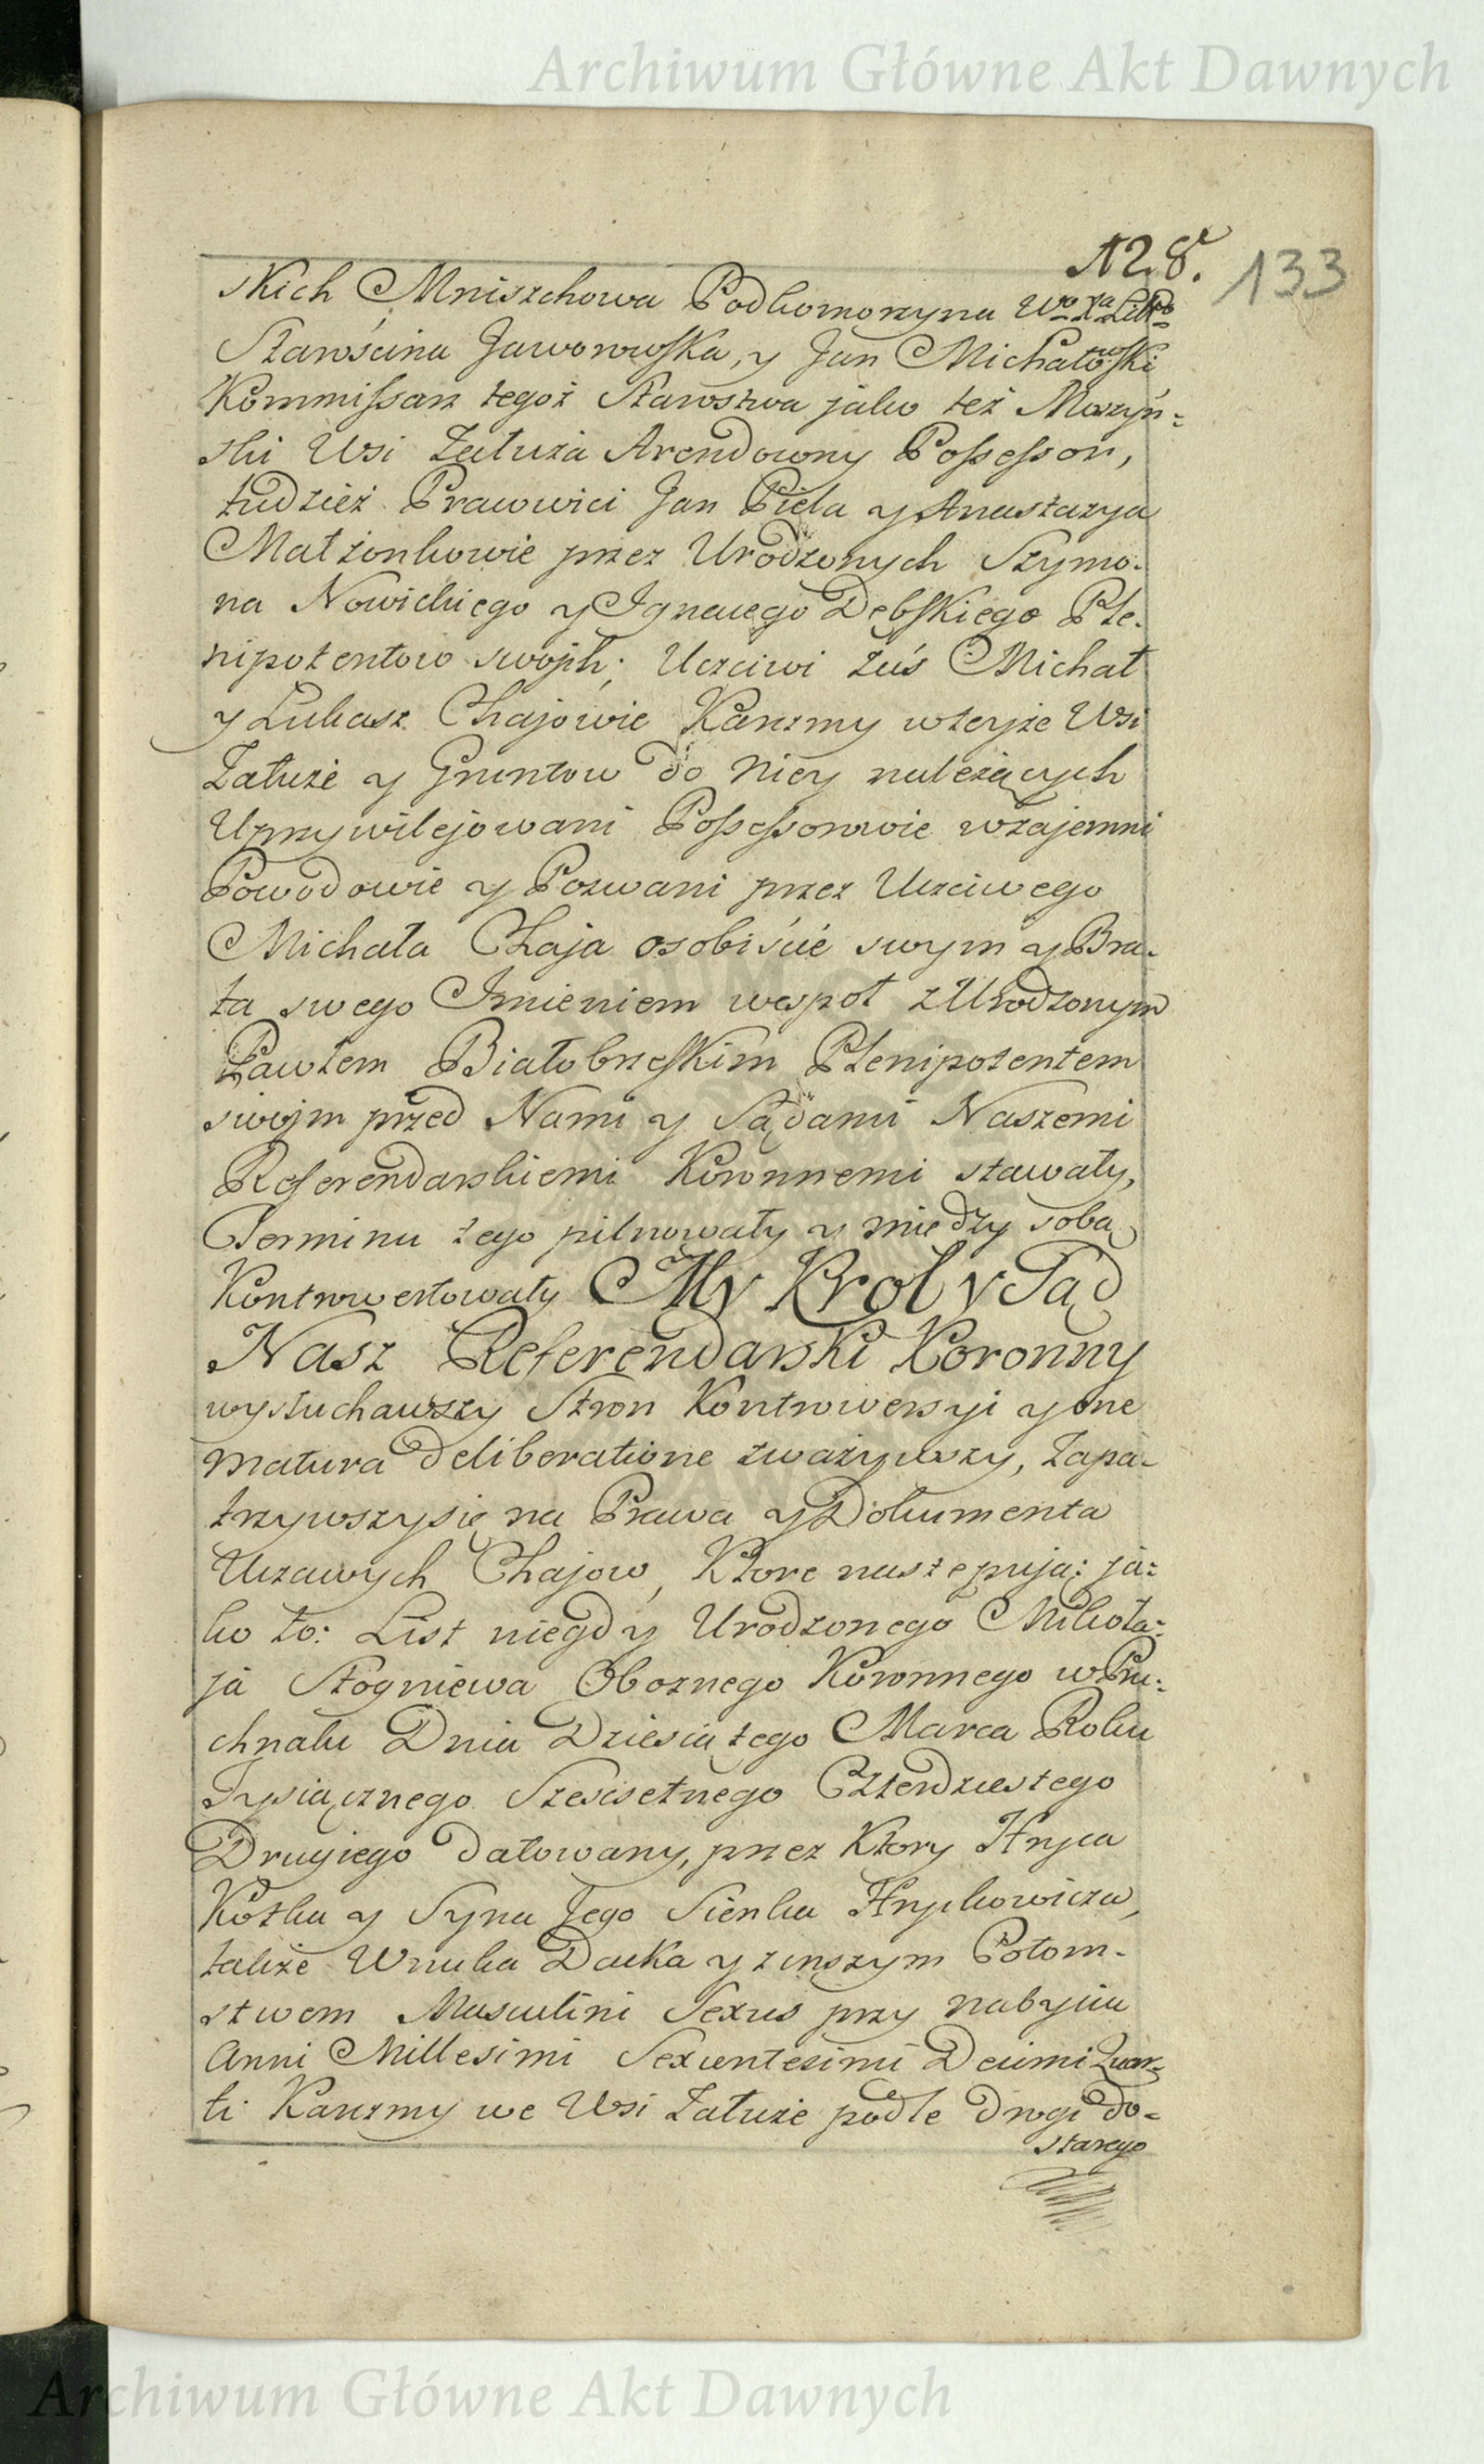 Archiwum Główne Akt Dawnych
N2.8.
133
skich Mniszchowa Podkomorzyna Wo Xa Litto
Starościna Jaworowska, y Jan Michałowski
Kommissarz tegoż Starostwa jako też Moszyń=
ski Wsi Załuża Arendowny Possessor,
tudzież Prawwici Jan Piela y Anastazya
Małżonkowie przez Urodzonych Szymo-
na Nowickiego y Ignacego Dębskiego Ple-
nipotentow swojch; Uczciwi zaś Michał
y Łukasz Chajowie Karczmy wteyże Wsi
Załuże y Gruntow do niey należących
Uprzywilejowani Possessorowie wzajemni
Powodowie y Pozwani przez Uczciwego
Michała Chaja osobiście swym y Bra-
ta swego Imieniem wespoł z Urodzonym
Pawłem Białobrzeskim Plenipotentem
swojm przed Nami y Sądami Naszemi
Referendarskiemi Koronnemi stawały,
Terminu tego pilnowały y między sobą
Kontrowertowały My Krol y Sąd
Nasz Referendarski Koronny
wysłuchawszy Stron Kontrowersyi y one
matura deliberatione zważywszy, zapa-
trzywszysię na Prawa y Dokumenta
Uczciwych Chajow, Ktore następują: ja=
ko to: List niegdy Urodzonego Mikoła=
ja Stogniewa Oboznego Koronnego w Pru=
chnaku Dnia Dziesiątego Marca Roku
Tysiącznego Szescsetnego Czterdziestego
Drugiego datowany, przez Ktory Hryca
Kozka y Syna Jego Sienka Hryckowicza,
także Wnuka Dacka y z inszym Potom-
stwem Masculini Sexus przy nabyciu
Anni Millesimi Sexcentesimi Decimi Quar=
ti Karczmy we Wsi Załuże podle drogi do-
starego
Archiwum Główne Akt Dawnych